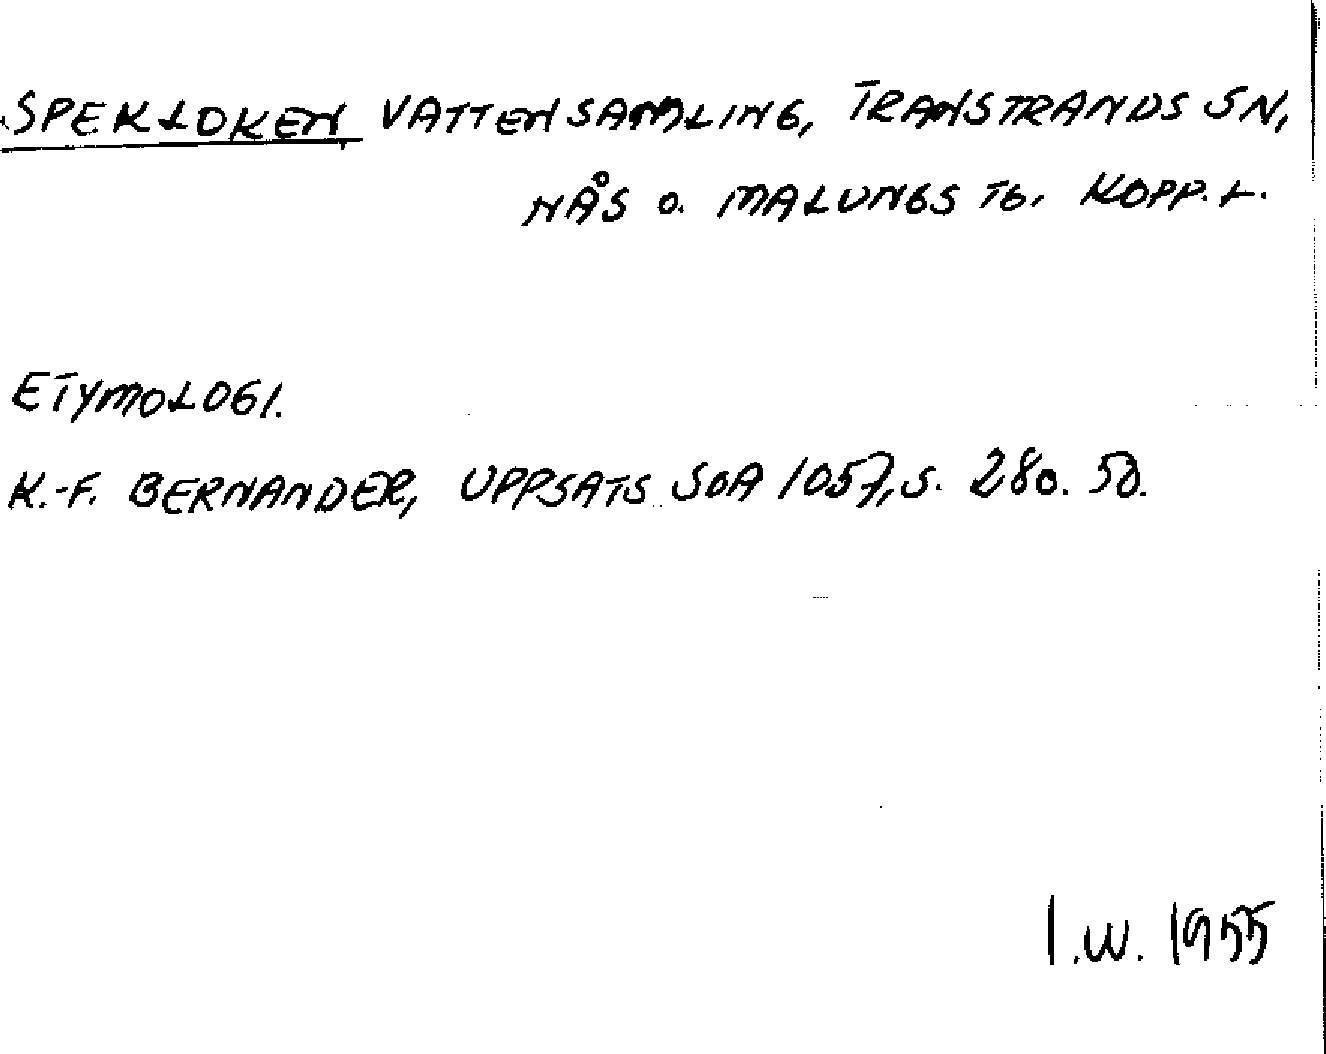 SPEKLOKEN, VATTENSAMLING, TRANSTRANDS SN,
NÅS O. MALUNGS TG. KOPP. L.
ETYMOLOGI.
K.-F. BERNANDER, UPPSATS SOA 1057, S. 280. 50.
I.W. 1955